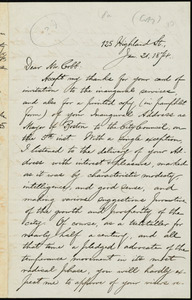 125 Highland St.,
Jan. 21, 1874.
Dear Mr. Cobb:
Accept my thanks for your card of
invitation to the inaugural services,
and also for a printed copy, (in pamphlet
form,) of your Inaugural Address as
Mayor of Boston to the City Council, on
the 5th inst. With a single exception,
I listened to the delivery of your Ad-
dress with interest & pleasure, marked
as it was by characteristic modesty,
intelligence, and good sense, and
making various suggestions promotive
of the growth and prosperity of the
city. Of course, as a teetotaller for
nearly half a century, and all
that time a pledged advocate of the
temperance movement in its most
radical phase, you will hardly ex-
pect me to approve of your views re-